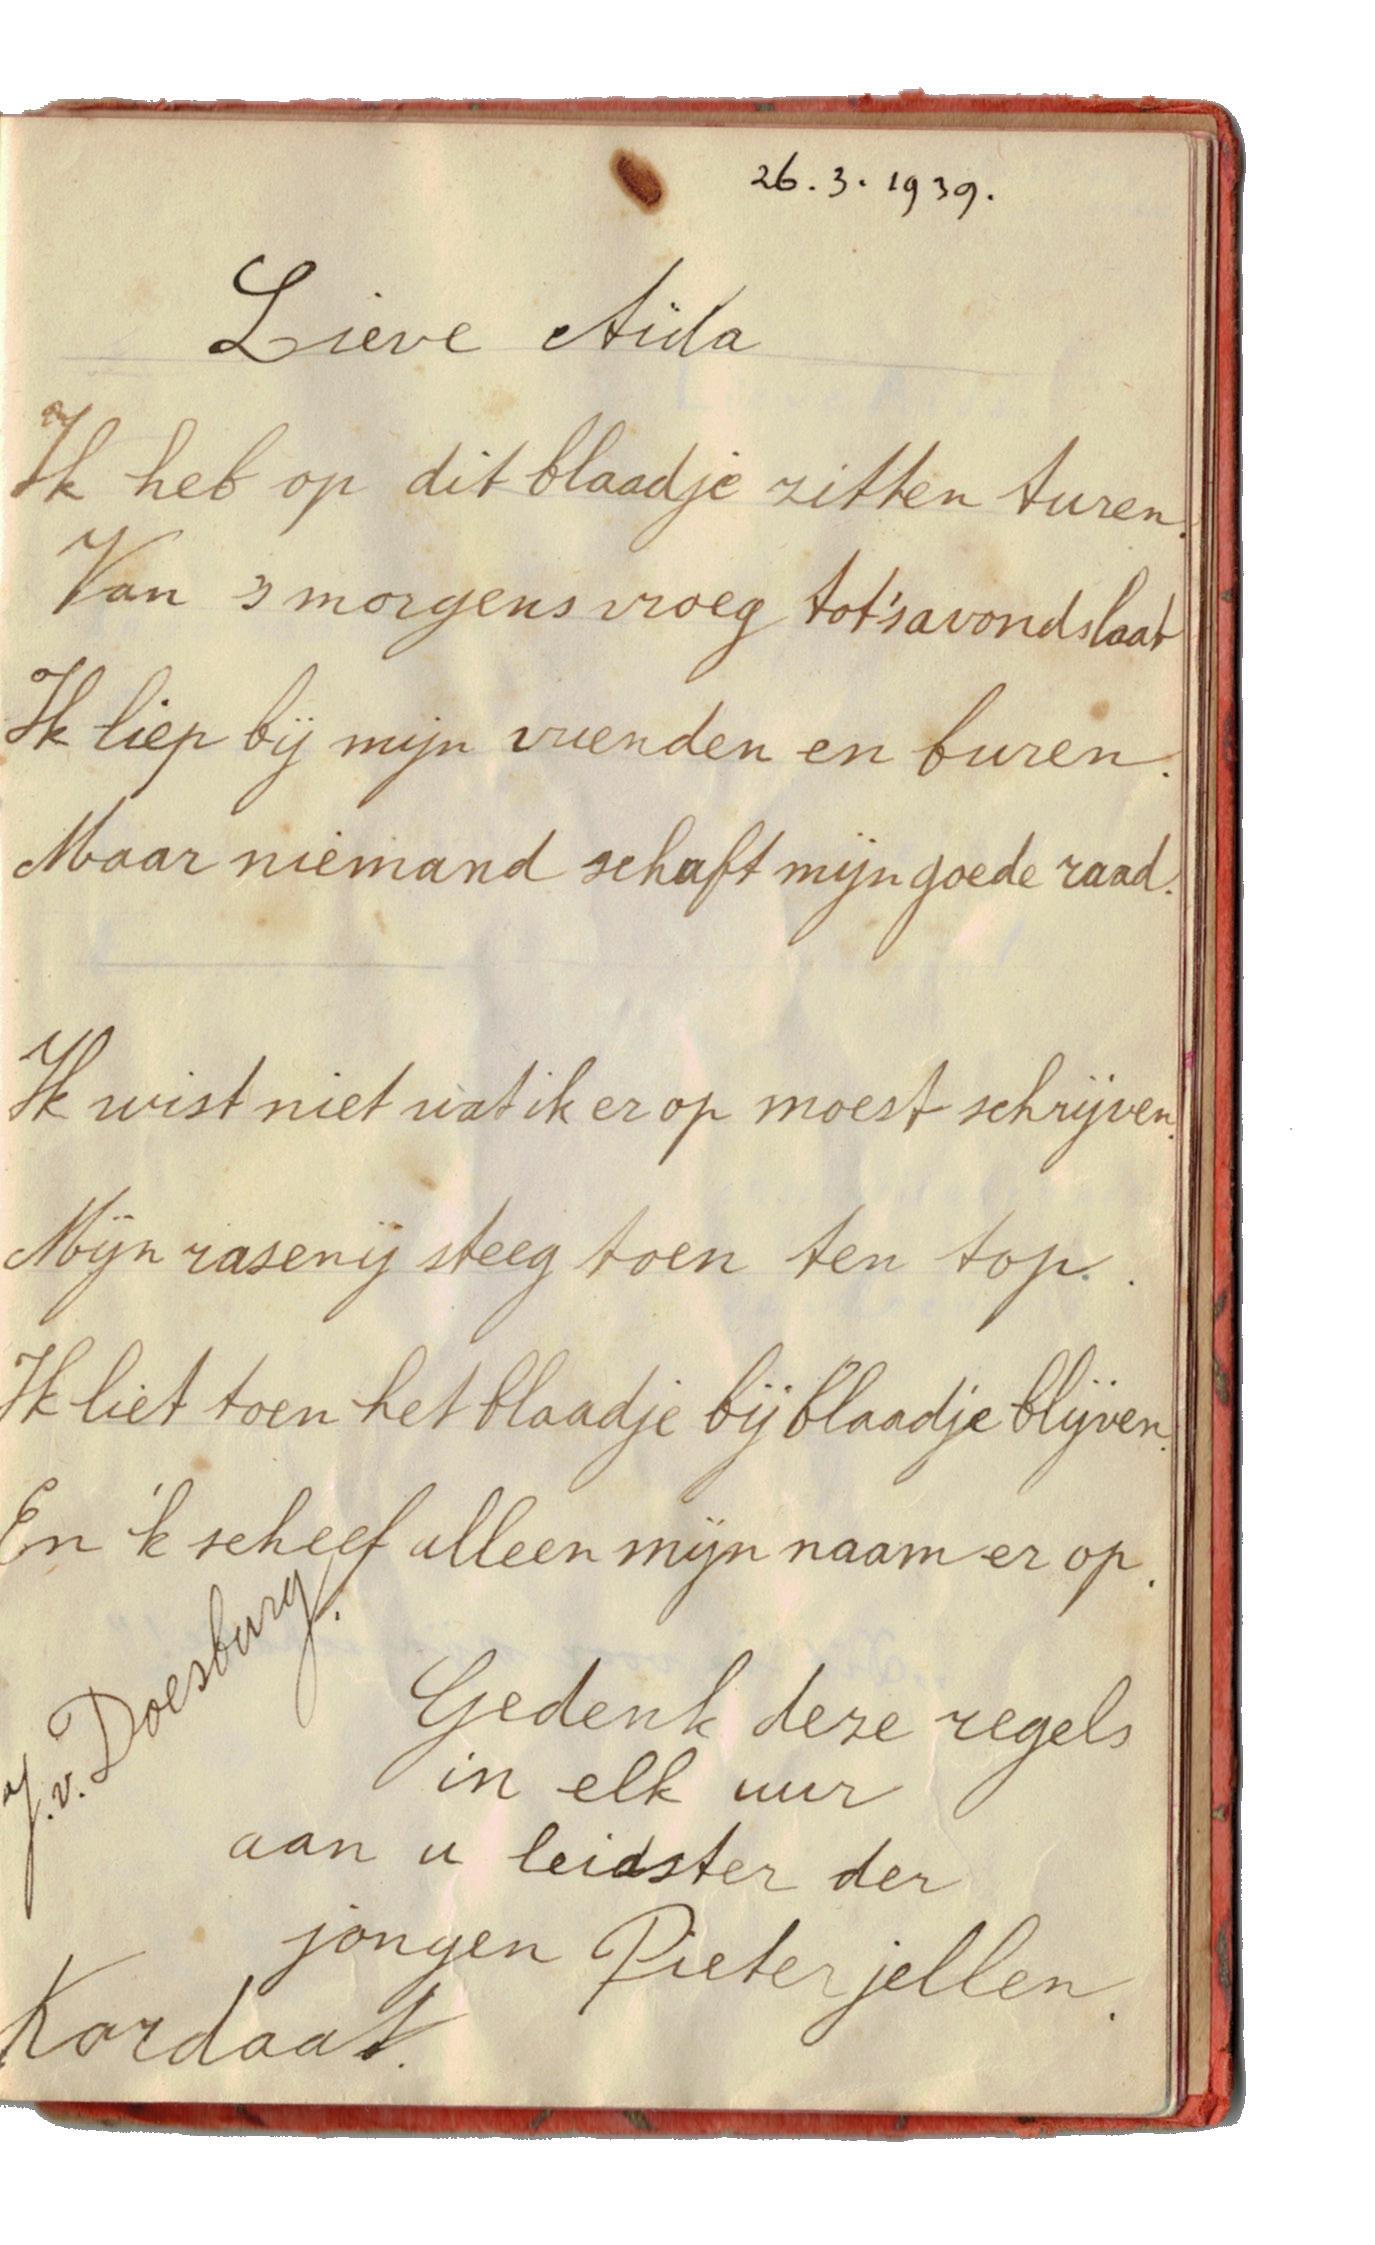 26.3.1939.
Lieve Aïda
Ik heb op dit blaadje zitten turen.
Van 's morgens vroeg tot 's avonds laat
Ik liep bij mijn vrienden en buren.
Maar niemand schaft mijn goede raad.
Ik wist niet wat ik er op moest schrijven.
Mijn rasernij steeg toen ten top.
Ik liet toen het blaadje bij blaadje blijven.
En 'k scheef alleen mijn naam er op.
J. v. Doesburg.
Gedenk deze regels
in elk uur
aan u leidster der
jongen Pieter jellen.
Kordaat.